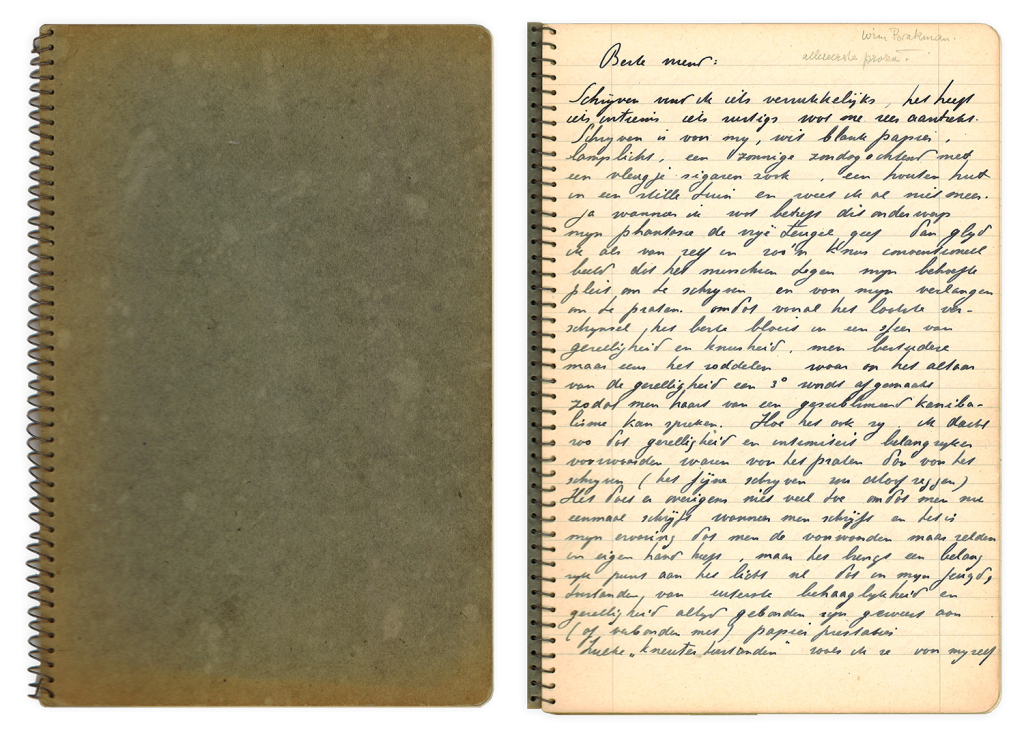 Wim Brakman.
allereerste proza.
Beste vriend:
Schrijven vind ik iets verrukkelijks, het heeft
iets intiems iets rustigs wat me zeer aantrekt.
Schrijven is voor mij, wit blank papier,
lamplicht, een zonnige zondagochtend met
een vleugje sigaren rook, een houten hut
in een stille tuin en weet ik al niet meer.
Ja wanneer ik wat betreft dit onderwerp
mijn phantasie de vrije teugel geef dan glijd
ik als van zelf in zo'n knus conventioneel
beeld dat het misschien tegen mijn behoefte
pleit om te schrijven en voor mijn verlangen
om te praten. omdat vooral het laatste ver-
schijnsel, het beste bloeit in een sfeer van
gezelligheid en knusheid. men bestudere
maar eens het roddelen waar op het altaar
van de gezelligheid een 3e wordt afgemaakt
zodat men haast van een gesublimeerd kaniba-
lisme kan spreken. Hoe het ook zij, ik dacht
zo dat gezelligheid en intimiteit belangrijker
voorwaarden waren voor het praten dan voor het
schrijven (het fijne schrijven zou ditof zeggen)
Het doet er overigens niet veel toe omdat men nu
eenmaal schrijft wanneer men schrijft en het is
mijn ervaring dat men de voorwaarden maar zelden
in eigen hand heeft, maar het brengt een belang
rijk punt aan het licht nl. dat in mijn jeugd,
toestanden, van uiterste behaaglijkheid en
gezelligheid altijd gebonden zijn geweest aan
(of verbonden met) papier prestaties
Zulke „kneuter toestanden" zoals ik ze voor mijzelf